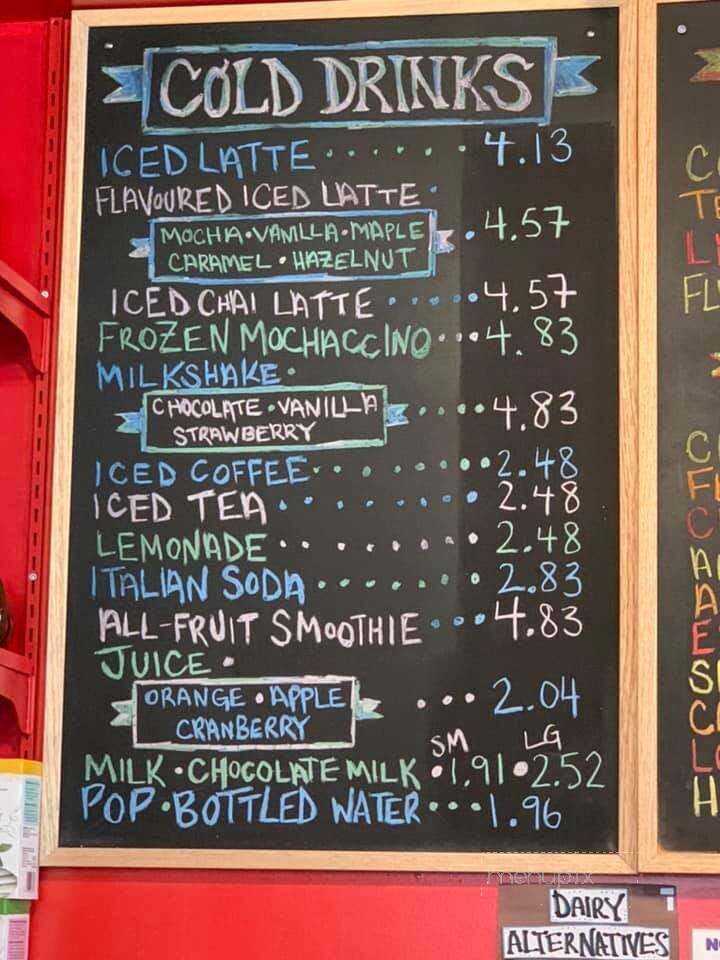 COLD DRINKS
ICED LATTE . . . . . . 4.13
FLAVOURED ICED LATTE .
MOCHA • VANILLA • MAPLE
CARAMEL • HAZELNUT . 4.57
ICED CHAI LATTE . . . . . 4.57
FROZEN MOCHACCINO . . . 4.83
MILKSHAKE •
CHOCOLATE • VANILLA
STRAWBERRY . . . . . 4.83
ICED COFFEE . . . . . . . . 2.48
ICED TEA . . . . . . . . 2.48
LEMONADE . . . . . . . . 2.48
ITALIAN SODA . . . . . . . 2.83
ALL-FRUIT SMOOTHIE . . . 4.83
JUICE •
ORANGE • APPLE
CRANBERRY . . . 2.04
SM LG
MILK • CHOCOLATE MILK • 1.91 • 2.52
POP • BOTTLED WATER . . . 1.96
menupix
DAIRY
ALTERNATIVES